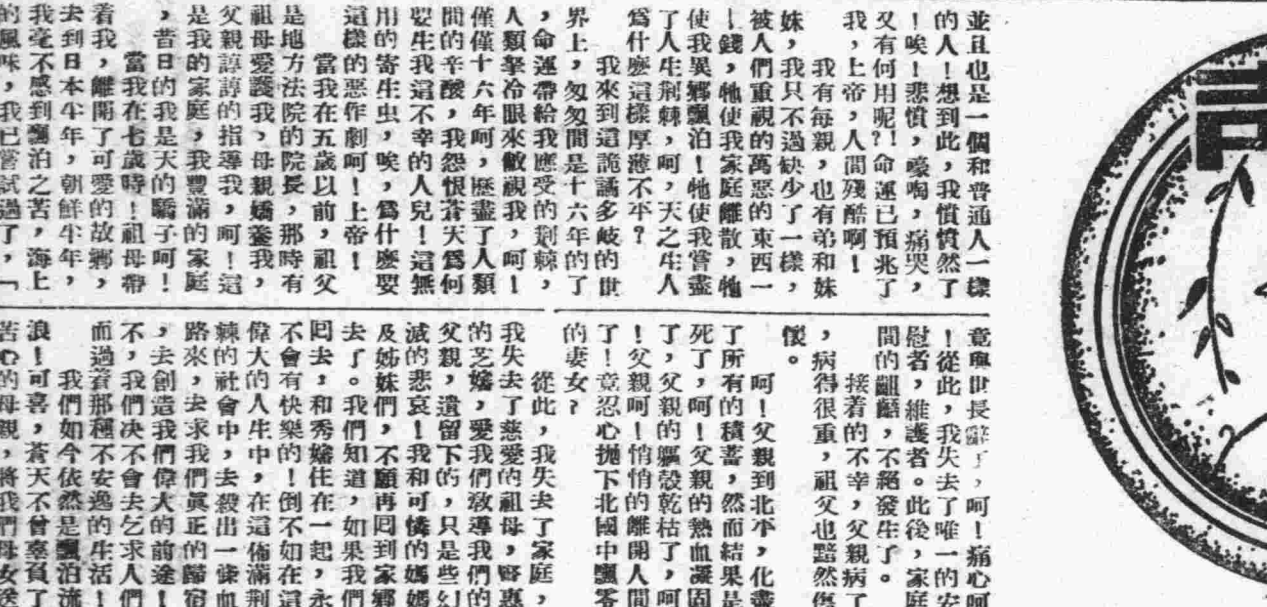 並且也是一個和普通人一樣
的人！想到此，我憤憤然了
！唉！悲憤，嚎啕，痛哭，
又有何用呢?！命運已預兆了
我，上帝，人間殘酷啊！
我有每親，也有弟和妹
妹，我只不過缺少了一樣，
被人們重視的萬惡的東西一
！錢，牠使我家庭離散，牠
使我異鄉飄泊！牠使我嘗盡
了人生荆棘，呵，天之生人
爲什麽這樣厚薄不平？
我來到這詭譎多岐的世
界上，匆匆間是十六年的了
，命運帶給我應受的荆棘，
人類拏冷眼來敵視我，呵！
僅僅十六年呵，歷盡了人類
間的辛酸，我怨恨蒼天爲何
要生我這不幸的人兒！這無
用的寄生虫，唉，爲什麽要
這樣的惡作劇呵！上帝！
當我在五歲以前，祖父
是地方法院的院長，那時有
祖母愛護我，母親嬌養我，
父親諄諄的指導我，呵！這
是我的家庭，我豐滿的家庭
，昔日的我是天的驕子呵！
當我在七歲時！祖母帶
着我，離開了可愛的故鄉，
去到日本半年，朝鮮半年，
我毫不感到飄泊之苦，海上
的風味，我已嘗試過了，「
竟與世長辭了，呵！痛心呵
！從此，我失去了唯一的安
慰者，維護者。此後，家庭
間的齟齬，不絕發生了。
接着的不幸，父親病了
，病得很重，祖父也黯然傷
懷。
呵！父親到北平，化盡
了所有的積蓄，然而結果是
死了，呵！父親的熱血凝固
了，父親的軀殼乾枯了，呵
！父親呵！悄悄的離開人間
了！竟忍心拋下北國中飄零
的妻女？
從此，我失去了家庭，
我失去了慈愛的祖母，賢惠
的芝嬸，愛我們教導我們的
父親，遺留下的，只是些幻
滅的悲哀！我和可憐的媽媽
及姊妹們，不願再回到家鄉
去了。我們知道，如果我們
回去，和秀嬸住在一起，永
不會有快樂的！倒不如在這
偉大的人生中，在這佈滿荆
棘的社會中，去殺出一條血
路來，去求我們眞正的歸宿
，去創造我們偉大的前途！
不，我們決不會去乞求人們
而過着那種不安逸的生活！
我們如今依然是飄泊流
浪！可喜，蒼天不曾辜負了
苦心的母親，將我們母女送